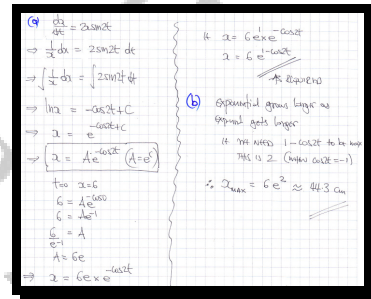 (a) dx/dt = 2x sin2t
⇒ 1/x dx = 2sin2t dt
⇒ ∫ 1/x dx = ∫ 2sin2t dt
⇒ ln x = -cos2t + C
⇒ x = e^(-cos2t + C)
⇒ x = Ae^(-cos2t) (A = e^c)
t=0 x=6
6 = Ae^(-cos0)
6 = Ae^(-1)
6/e^(-1) = A
A = 6e
⇒ x = 6e × e^(-cos2t)
x = 6e^1 × e^(-cos2t)
x = 6e^(1-cos2t)
AS REQUIRED
(b) exponential grows larger as
exponent gets larger
NEED 1 - cos2t to be max
THIS IS 2 (when cos2t = -1)
∴ x_max = 6e^2 ≈ 44.3 cm